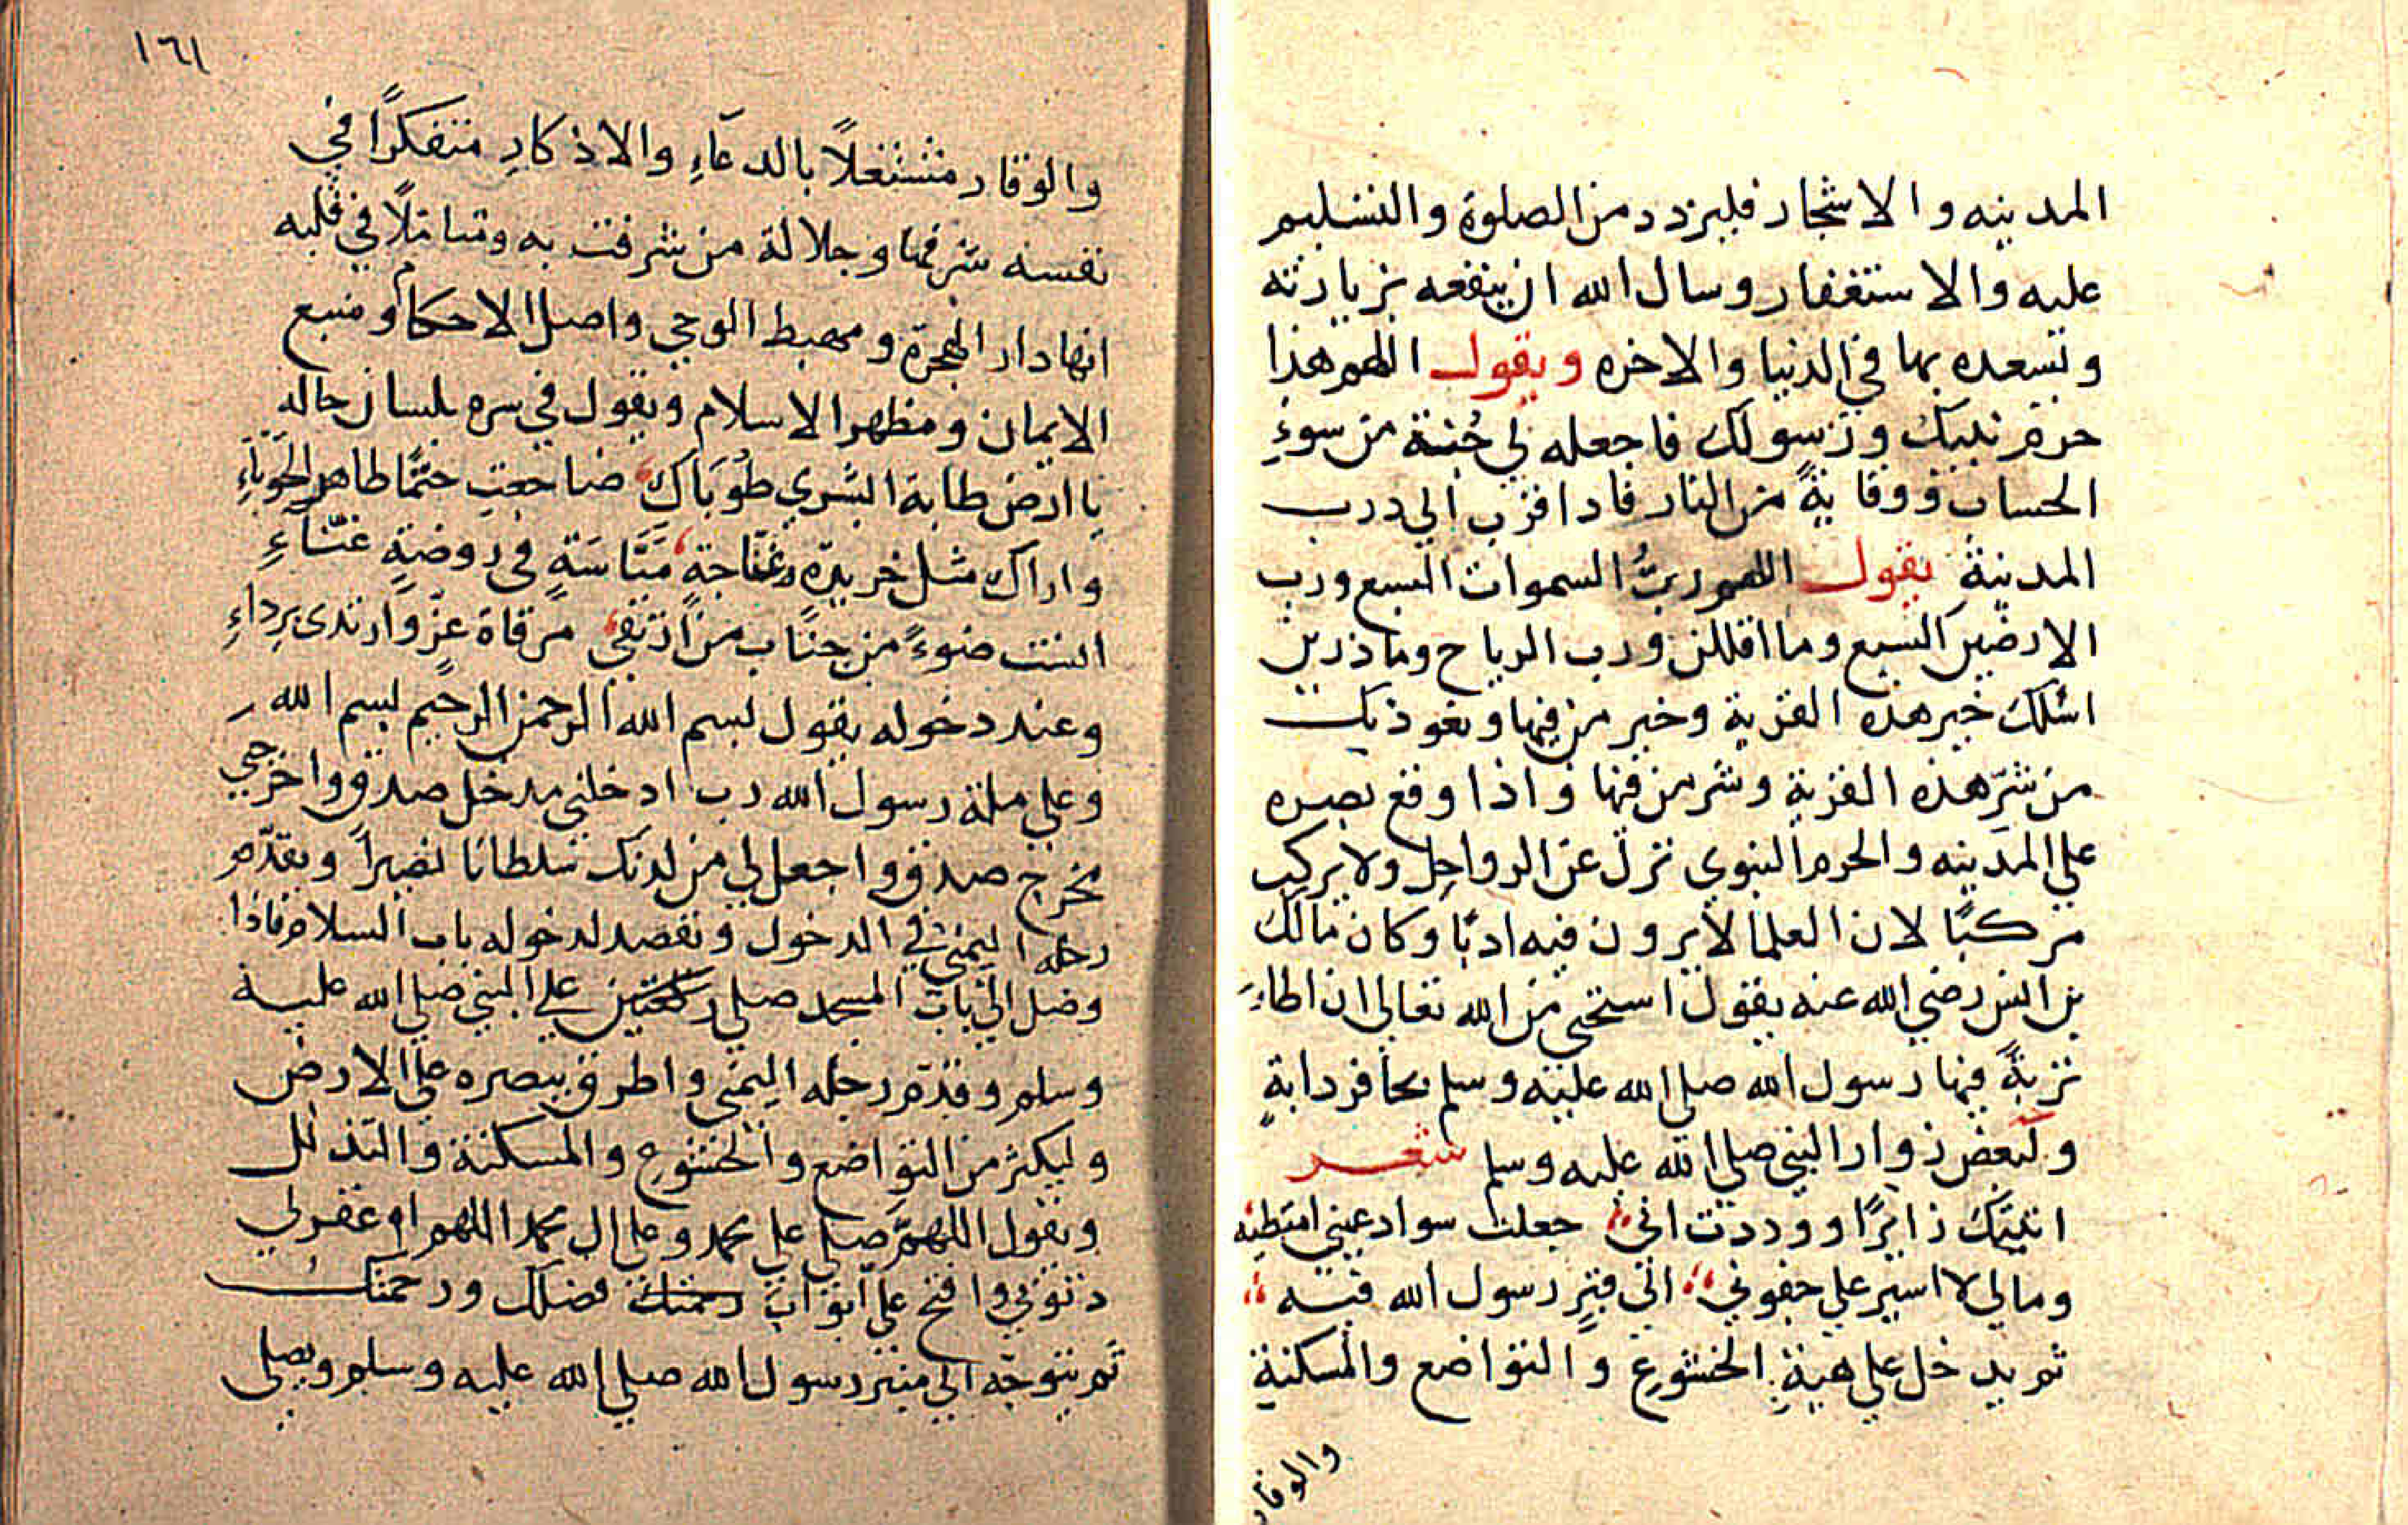 المدينه والاشجار فليزدد من الصلوة والتسليم
عليه والاستغفار وسال الله ان ينفعه بزيارته
وتسعده بها في الدنيا والاخره ويقول اللهم هذا
حرم نبيك ورسولك فاجعله لي جُنة من سوءِ
الحساب ووقايةً من النار فاذا قرب الي درب
المدينة يقول اللهم ربُّ السموات السبع ورب
الارضين السبع وما اقللن ورب الرياح وما ذرين
اسٔلك خير هذه القرية وخير من فيها ونعوذ بك
من شرّ هذه القرية وشر من فيها واذا وقع بصره
علي المدينه والحرم النبوي نزل عن الرواحل ولا يركب
مركبًا لان العلما لا يرون فيه ادبًا وكان مالك
بن انس رضي الله عنه يقول استحي من الله تعالي ان اطاءَ
تربةً فيها رسول الله صلي الله عليه وسلم بحافر دابةٍ
ولبعض زوار النبي صلي الله عليه وسلم شعر
اتيتك زائرًا ووددت اني جعلت سواد عيني امتطيه
ومالي لا اسير علي جفوني الي قبرٍ رسول الله فيه
ثم يدخل علي هيةِ الخشوع والتواضع والمسكنة
والوقار
١٦١
والوقار مشتغلًا بالدعآءِ والاذكارِ متفكرًا في
نفسه شرفها وجلالة من شرفت به ومتاملًا في قلبه
انها دار الهجرة ومهبط الوحي واصل الاحكام ومنبع
الايمان ومظهر الاسلام ويقول في سره بلسان حاله
يا ارض طابة البشري طوباك ضاجعتِ ختمًا طاهر الحَوباءِ
واراك مثل خريدة وغنّاجة مَيّاسَةٍ في روضةٍ غنّآءِ
الستت ضوءً من جناب من ارتقي مرقاة عزّ وارتدى برداءِ
وعند دخوله يقول بسم الله الرحمن الرحيم بسم الله
وعلي ملة رسول الله رب ادخلني مدخل صدق واخرجني
مخرج صدق واجعل لي من لدنك سلطانا نصيراً ويقدّم
رجله اليمني في الدخول ونقصد لدخوله باب السلام فاذا
وصل الي باب المسجد صلي ركعتين علي النبي صلي الله عليه
وسلم وقدّم رجله اليمني واطرق ببصره علي الارض
وليكثر من التواضع والخشوع والمسكنة والتذلل
ويقول اللهمّ صلي علي محمد وعلي ال محمد اللهم اوغفرلي
ذنوبي وافتح علي ابواب رحمتك فضلك ورحمتك
ثم يتوجّه الي منبر رسول الله صلي الله عليه وسلم ويصلي